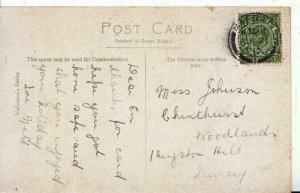 POST CARD
Printed in Great Britain
This space may be used for Communication
The Address only to be written here
Dear Em
thanks for card
hope you got
home safe and
that you enjoyed
your holiday
Love Nell
Miss Johnson
Chinehurst
Woodlands
Kingston Hill
Surrey